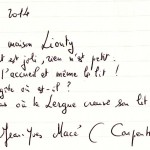 2014
maison Liouty
est joli, rien n'est petit.
l'accueil et même le lit !
gste où est-il ?
as où la Lergue creuse son lit
Jean-Yves Macé ( Carpent